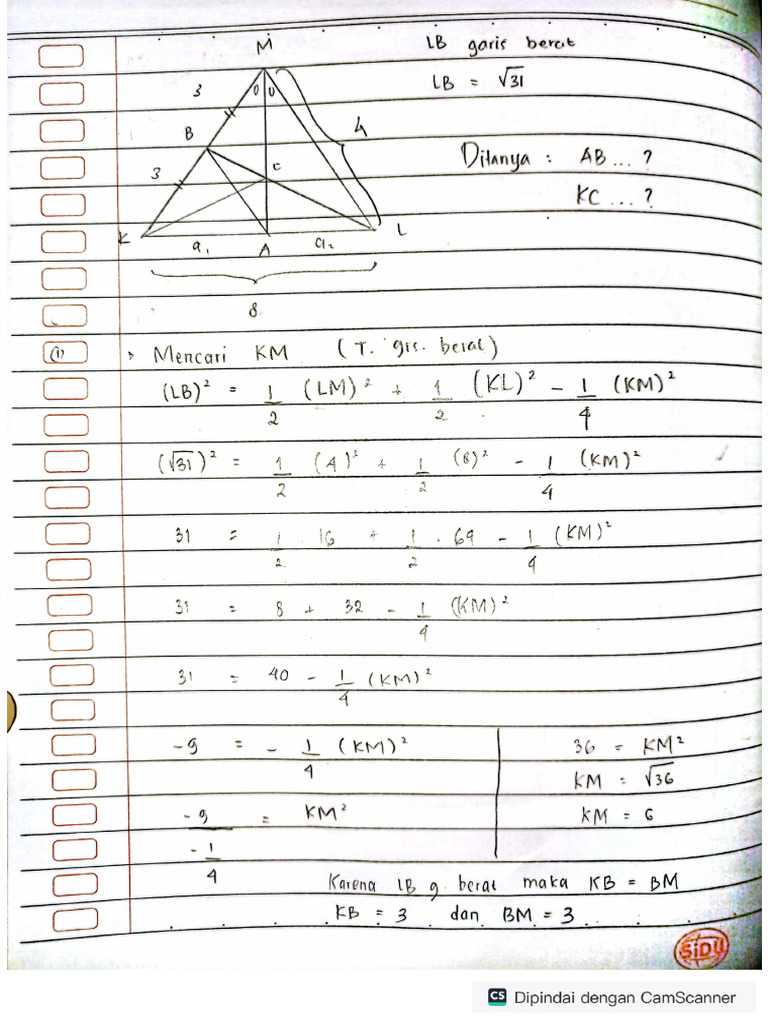 M
LB garis berat
LB = √31
3
0 0
4
B
Ditanya : AB ... ?
KC ... ?
C
3
K
a₁
A
a₂
L
8
(1)
Mencari KM (T. grs. berat)
(LB)² = 1/2 (LM)² + 1/2 (KL)² - 1/4 (KM)²
(√31)² = 1/2 (4)² + 1/2 (8)² - 1/4 (KM)²
31 = 1/2 . 16 + 1/2 . 64 - 1/4 (KM)²
31 = 8 + 32 - 1/4 (KM)²
31 = 40 - 1/4 (KM)²
-9 = - 1/4 (KM)²
-9 / -1/4 = KM²
36 = KM²
KM = √36
KM = 6
Karena LB g. berat maka KB = BM
KB = 3 dan BM = 3
SiDU
CS Dipindai dengan CamScanner